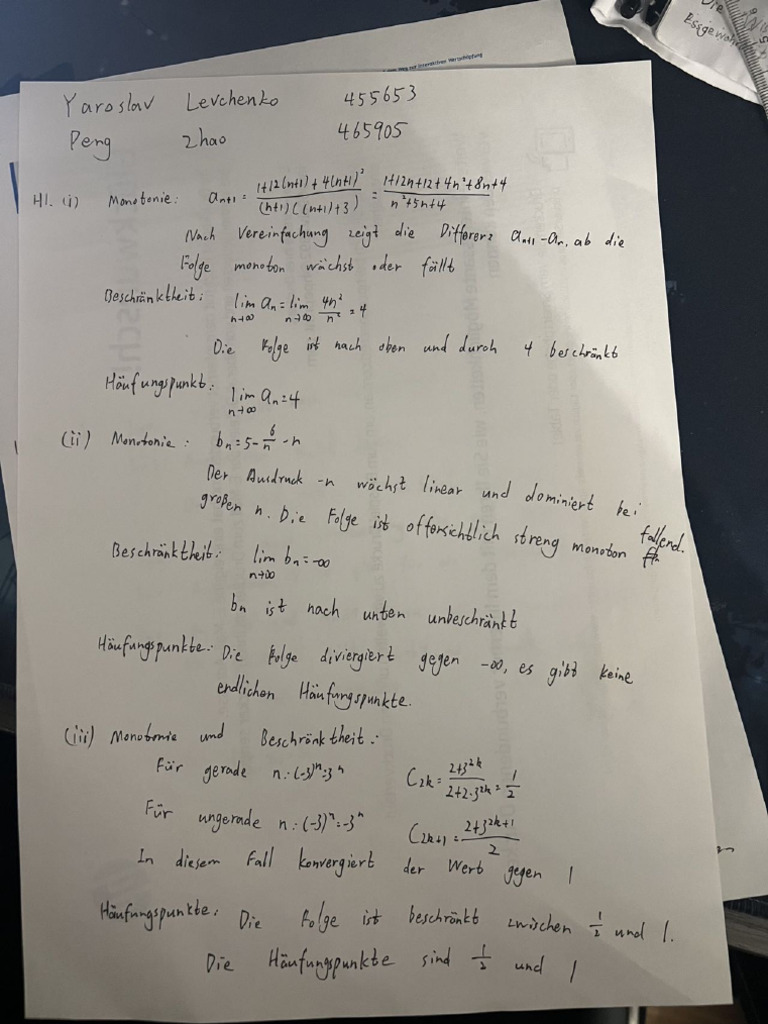 Die
Essgewohn
Yaroslav Levchenko 455653
Peng Zhao 465905
H1. (i) Monotonie: a_{n+1} = \frac{1+12(n+1)+4(n+1)^2}{(n+1)((n+1)+3)} = \frac{1+12n+12+4n^2+8n+4}{n^2+5n+4}
Nach Vereinfachung zeigt die Differenz a_{n+1}-a_n, ob die
Folge monoton wächst oder fällt
Beschränktheit: \lim_{n→∞} a_n = \lim_{n→∞} \frac{4n^2}{n^2} = 4
Die Folge ist nach oben und durch 4 beschränkt
Häufungspunkt: \lim_{n→∞} a_n = 4
(ii) Monotonie: b_n = 5 - \frac{6}{n} - n
Der Ausdruck -n wächst linear und dominiert bei
großen n. Die Folge ist offensichtlich streng monoton fallend.
Beschränktheit: \lim_{n→∞} b_n = -∞
b_n ist nach unten unbeschränkt
Häufungspunkte: Die Folge diviergiert gegen -∞, es gibt keine
endlichen Häufungspunkte.
(iii) Monotonie und Beschränktheit:
Für gerade n: (-3)^n = 3^n C_{2k} = \frac{2+3^{2k}}{2+2·3^{2k}} = \frac{1}{2}
Für ungerade n: (-3)^n = -3^n C_{2k+1} = \frac{2+3^{2k+1}}{2}
In diesem Fall konvergiert der Wert gegen 1
Häufungspunkte: Die Folge ist beschränkt zwischen \frac{1}{2} und 1.
Die Häufungspunkte sind \frac{1}{2} und 1